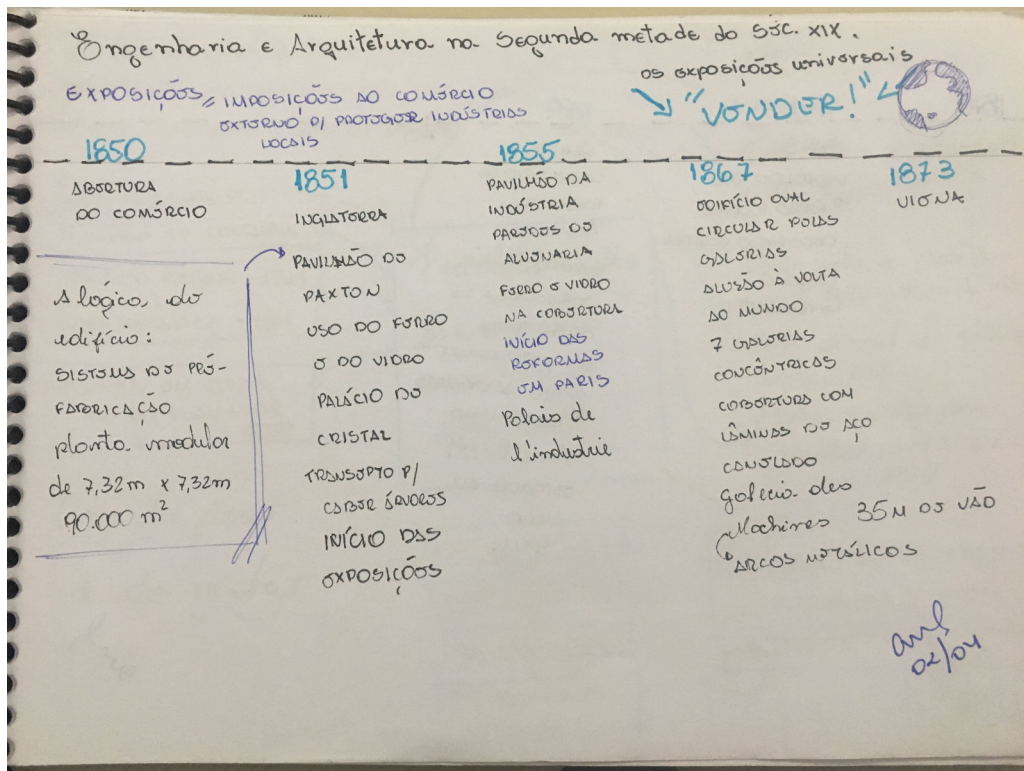 Engenharia e Arquitetura na Segunda metade do Séc. XIX.
as exposições universais
"VENDER!"
EXPOSIÇÕES = IMPOSIÇÕES AO COMÉRCIO
EXTERNO P/ PROTEGER INDÚSTRIAS
LOCAIS
1850
ABERTURA
DO COMÉRCIO
A lógica do
edifício:
SISTEMA DE PRÉ-
FABRICAÇÃO
planta modular
de 7,32m x 7,32m
90.000 m²
1851
INGLATERRA
PAVILHÃO DE
PAXTON
USO DO FERRO
E DO VIDRO
PALÁCIO DE
CRISTAL
TRANSEPTO P/
CABER ÁRVORES
INÍCIO DAS
EXPOSIÇÕES
1855
PAVILHÃO DA
INDÚSTRIA
PAREDES DE
ALVENARIA
FERRO E VIDRO
NA COBERTURA
INÍCIO DAS
REFORMAS
EM PARIS
Palais de
l'industrie
1867
EDIFÍCIO OVAL
CIRCULAR PELAS
GALERIAS
ALUSÃO À VOLTA
AO MUNDO
7 GALERIAS
CONCÊNTRICAS
COBERTURA COM
LÂMINAS DE AÇO
CANELADO
Galeria des
Machines 35M DE VÃO
ARCOS METÁLICOS
1873
VIENA
02/04